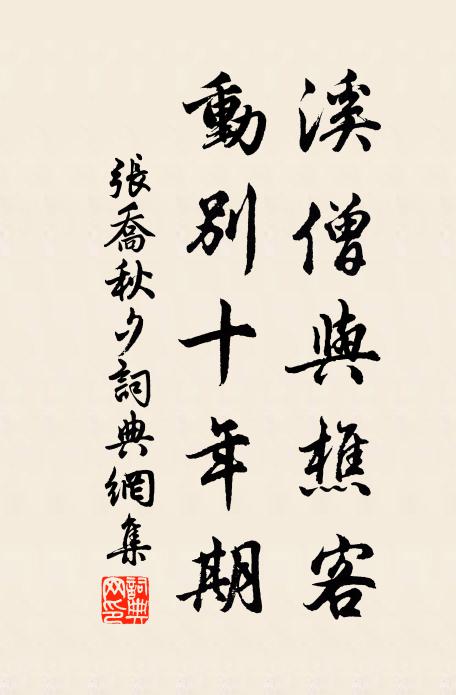 溪僧與樵客
動別十年期
張喬秋夕詞典網集
詞典網印